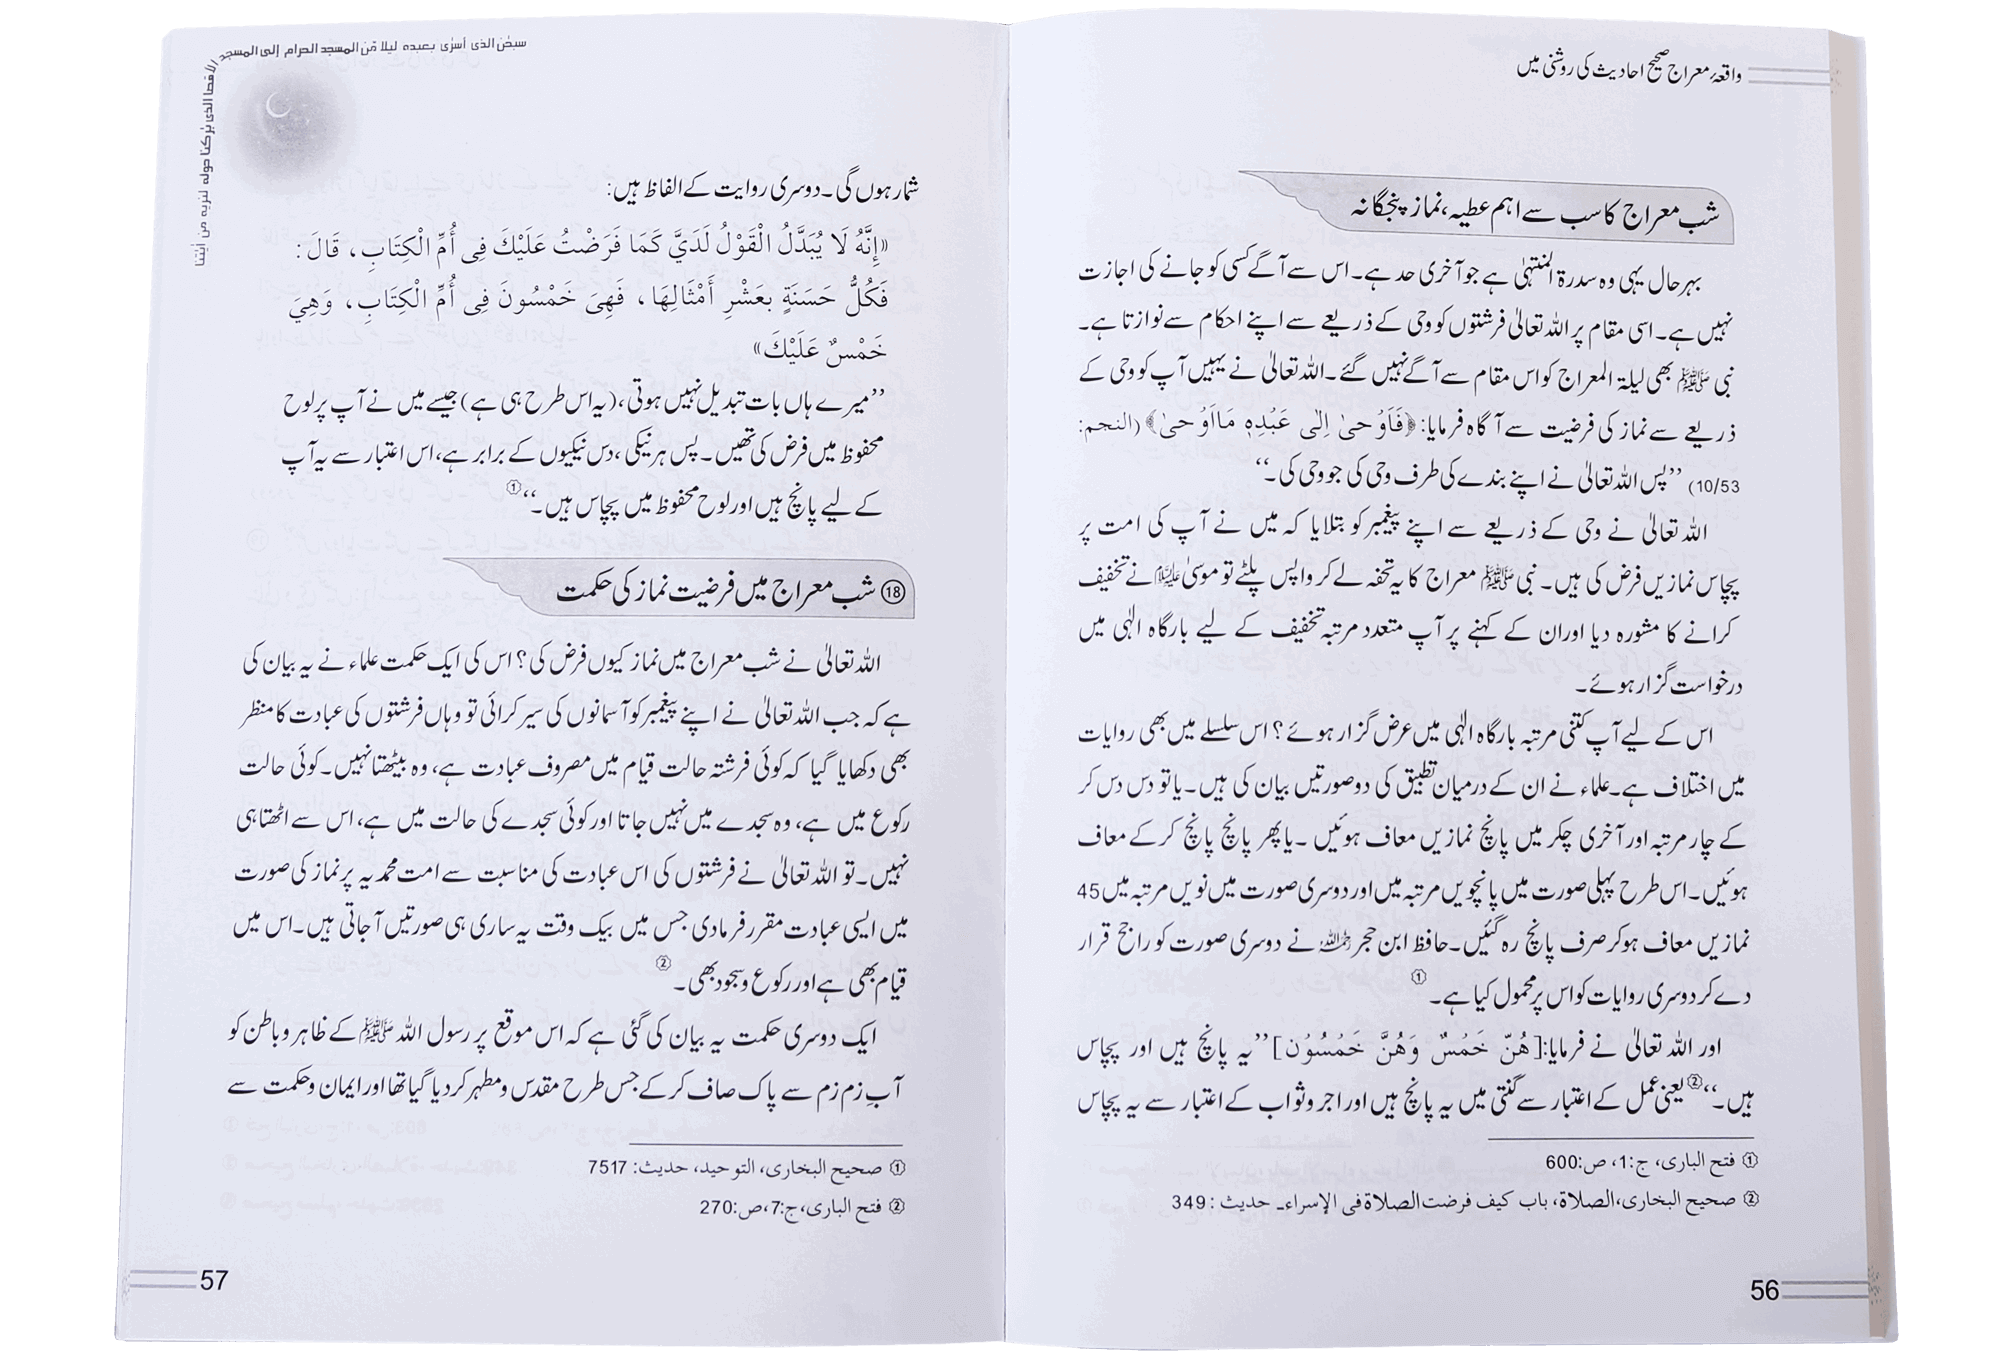 واقعۂ معراج صحیح احادیث کی روشنی میں
شب معراج کا سب سے اہم عطیہ، نماز پنجگانہ
بہر حال یہی وہ سدرۃ المنتہیٰ ہے جو آخری حد ہے۔ اس سے آگے کسی کو جانے کی اجازت
نہیں ہے۔ اسی مقام پر اللہ تعالیٰ فرشتوں کو وحی کے ذریعے سے اپنے احکام سے نوازتا ہے۔
نبی ﷺ بھی لیلۃ المعراج کو اس مقام سے آگے نہیں گئے۔ اللہ تعالیٰ نے یہیں آپ کو وحی کے
ذریعے سے نماز کی فرضیت سے آگاہ فرمایا: ﴿فَاَوْحىٰ اِلىٰ عَبْدِهٖ مَااَوْحىٰ﴾ (النجم:
10/53) ’’پس اللہ تعالیٰ نے اپنے بندے کی طرف وحی کی جو وحی کی۔‘‘
اللہ تعالیٰ نے وحی کے ذریعے سے اپنے پیغمبر کو بتلایا کہ میں نے آپ کی امت پر
پچاس نمازیں فرض کی ہیں۔ نبی ﷺ معراج کا یہ تحفہ لے کر واپس پلٹے تو موسیٰ علیہ السلام نے تخفیف
کرانے کا مشورہ دیا اور ان کے کہنے پر آپ متعدد مرتبہ تخفیف کے لیے بارگاہ الٰہی میں
درخواست گزار ہوئے۔
اس کے لیے آپ کتنی مرتبہ بارگاہ الٰہی میں عرض گزار ہوئے؟ اس سلسلے میں بھی روایات
میں اختلاف ہے۔ علماء نے ان کے درمیان تطبیق کی دو صورتیں بیان کی ہیں۔ یا تو دس دس کر
کے چار مرتبہ اور آخری چکر میں پانچ نمازیں معاف ہوئیں۔ یا پھر پانچ پانچ کر کے معاف
ہوئیں۔ اس طرح پہلی صورت میں پانچویں مرتبہ میں اور دوسری صورت میں نویں مرتبہ میں 45
نمازیں معاف ہو کر صرف پانچ رہ گئیں۔ حافظ ابن حجر رحمہ اللہ نے دوسری صورت کو راجح قرار
دے کر دوسری روایات کو اس پر محمول کیا ہے۔ ①
اور اللہ تعالیٰ نے فرمایا: [هُنَّ خَمْسٌ وَهُنَّ خَمْسُوْن] ’’یہ پانچ ہیں اور پچاس
ہیں۔‘‘② یعنی عمل کے اعتبار سے گنتی میں یہ پانچ ہیں اور اجر و ثواب کے اعتبار سے یہ پچاس
① فتح الباری، ج:1، ص:600
② صحیح البخاری، الصلاة، باب كيف فرضت الصلاة فى الإسراء۔ حدیث : 349
56
سبحٰن الذى أسرٰى بعبده ليلا مّن المسجد الحرام إلى المسجد الأقصا الذى بٰركنا حوله لنريه من اٰيٰتنا
شمار ہوں گی۔ دوسری روایت کے الفاظ ہیں:
«إِنَّهُ لَا يُبَدَّلُ الْقَوْلُ لَدَيَّ كَمَا فَرَضْتُ عَلَيْكَ فِى أُمِّ الْكِتَابِ، قَالَ:
فَكُلُّ حَسَنَةٍ بِعَشْرِ أَمْثَالِهَا، فَهِىَ خَمْسُونَ فِى أُمِّ الْكِتَابِ، وَهِيَ
خَمْسٌ عَلَيْكَ»
’’میرے ہاں بات تبدیل نہیں ہوتی، (یہ اس طرح ہی ہے) جیسے میں نے آپ پر لوح
محفوظ میں فرض کی تھیں۔ پس ہر نیکی، دس نیکیوں کے برابر ہے، اس اعتبار سے یہ آپ
کے لیے پانچ ہیں اور لوح محفوظ میں پچاس ہیں۔‘‘①
⑱ شب معراج میں فرضیت نماز کی حکمت
اللہ تعالیٰ نے شب معراج میں نماز کیوں فرض کی؟ اس کی ایک حکمت علماء نے یہ بیان کی
ہے کہ جب اللہ تعالیٰ نے اپنے پیغمبر کو آسمانوں کی سیر کرائی تو وہاں فرشتوں کی عبادت کا منظر
بھی دکھایا گیا کہ کوئی فرشتہ حالت قیام میں مصروف عبادت ہے، وہ بیٹھتا نہیں۔ کوئی حالت
رکوع میں ہے، وہ سجدے میں نہیں جاتا اور کوئی سجدے کی حالت میں ہے، اس سے اٹھتا ہی
نہیں۔ تو اللہ تعالیٰ نے فرشتوں کی اس عبادت کی مناسبت سے امت محمدیہ پر نماز کی صورت
میں ایسی عبادت مقرر فرمادی جس میں بیک وقت یہ ساری ہی صورتیں آجاتی ہیں۔ اس میں
قیام بھی ہے اور رکوع و سجود بھی۔ ②
ایک دوسری حکمت یہ بیان کی گئی ہے کہ اس موقع پر رسول اللہ ﷺ کے ظاہر و باطن کو
آبِ زم زم سے پاک صاف کر کے جس طرح مقدس و مطہر کر دیا گیا تھا اور ایمان و حکمت سے
① صحیح البخاری، التوحید، حدیث: 7517
② فتح الباری، ج:7، ص:270
57